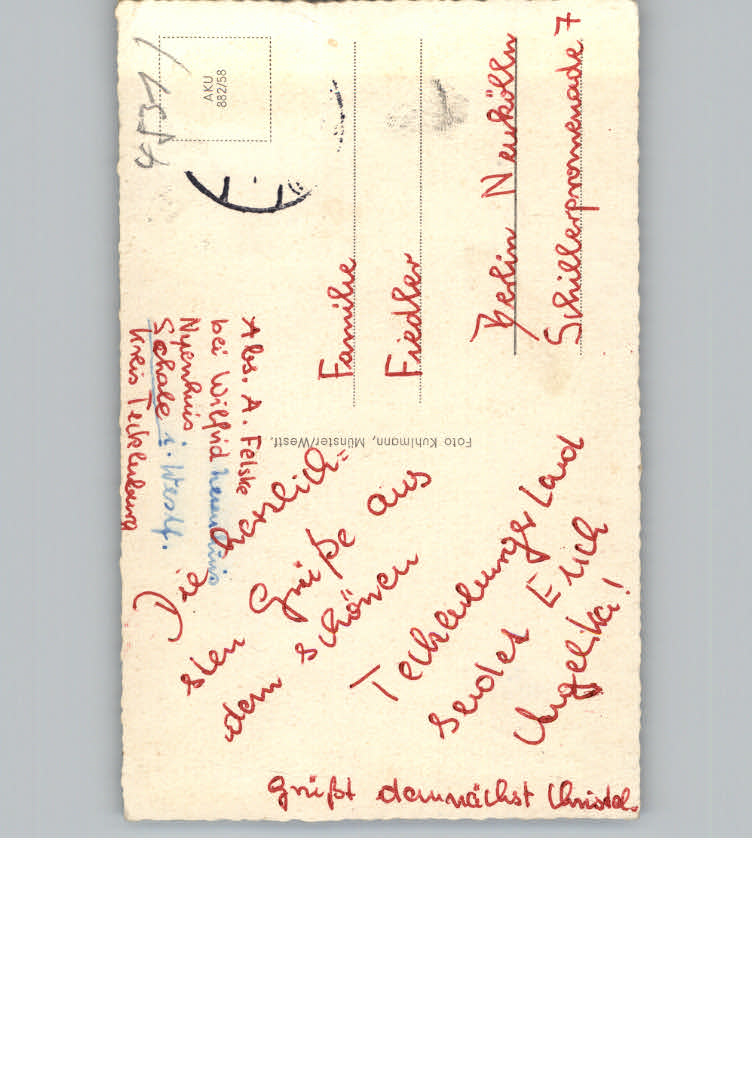 Abs. A. Felske
bei Wilfrid
Nyenhuis
Schale i. Westf.
Kreis Tecklenburg
Die herzlich=
sten Grüße aus
dem schönen
Tecklenburger Land
sendet Euch
Angelika!
Grüßt demnächst Christel.
Foto Kuhlmann, Münster/Westf.
AKU
882/58
Familie
Fiedler
Berlin Neukölln
Schillerpromenade 7